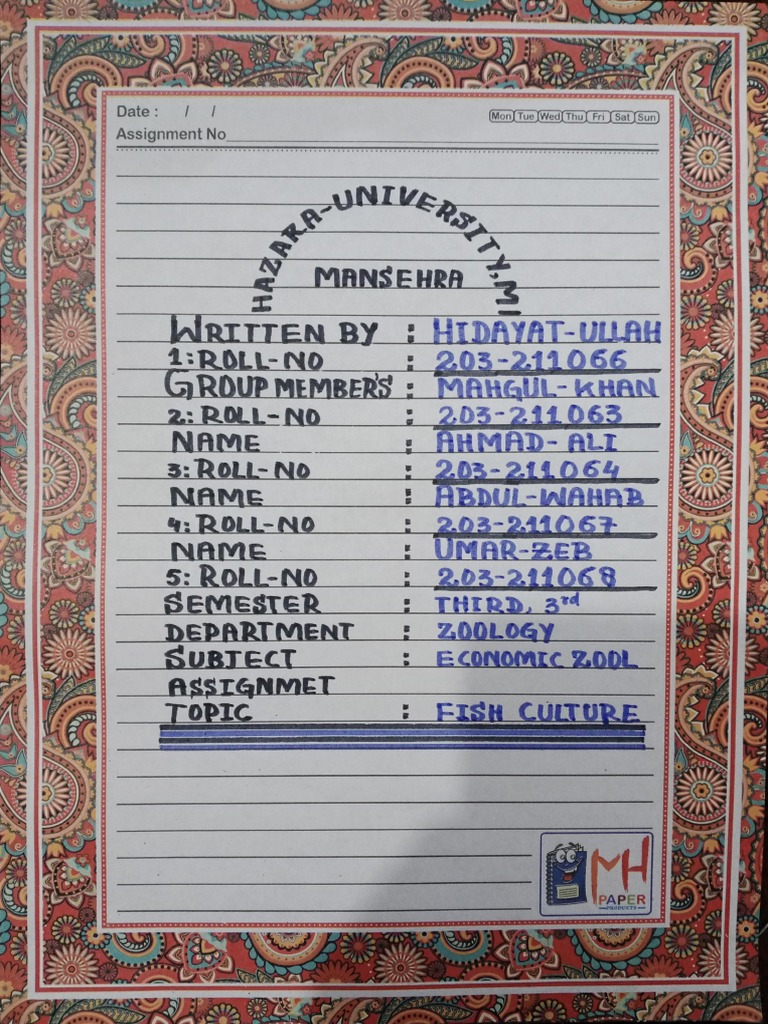 Date : / /
Mon Tue Wed Thu Fri Sat Sun
Assignment No
HAZARA-UNIVERSITY, MI
MANSEHRA
WRITTEN BY : HIDAYAT-ULLAH
1: ROLL-NO : 203-211066
GROUP MEMBER'S : MAHGUL-KHAN
2: ROLL-NO : 203-211063
NAME : AHMAD-ALI
3: ROLL-NO : 203-211064
NAME : ABDUL-WAHAB
4: ROLL-NO : 203-211067
NAME : UMAR-ZEB
5: ROLL-NO : 203-211068
SEMESTER : THIRD, 3rd
DEPARTMENT : ZOOLOGY
SUBJECT : ECONOMIC ZOOL
ASSIGNMET
TOPIC : FISH CULTURE
MH
PAPER
PRODUCTS